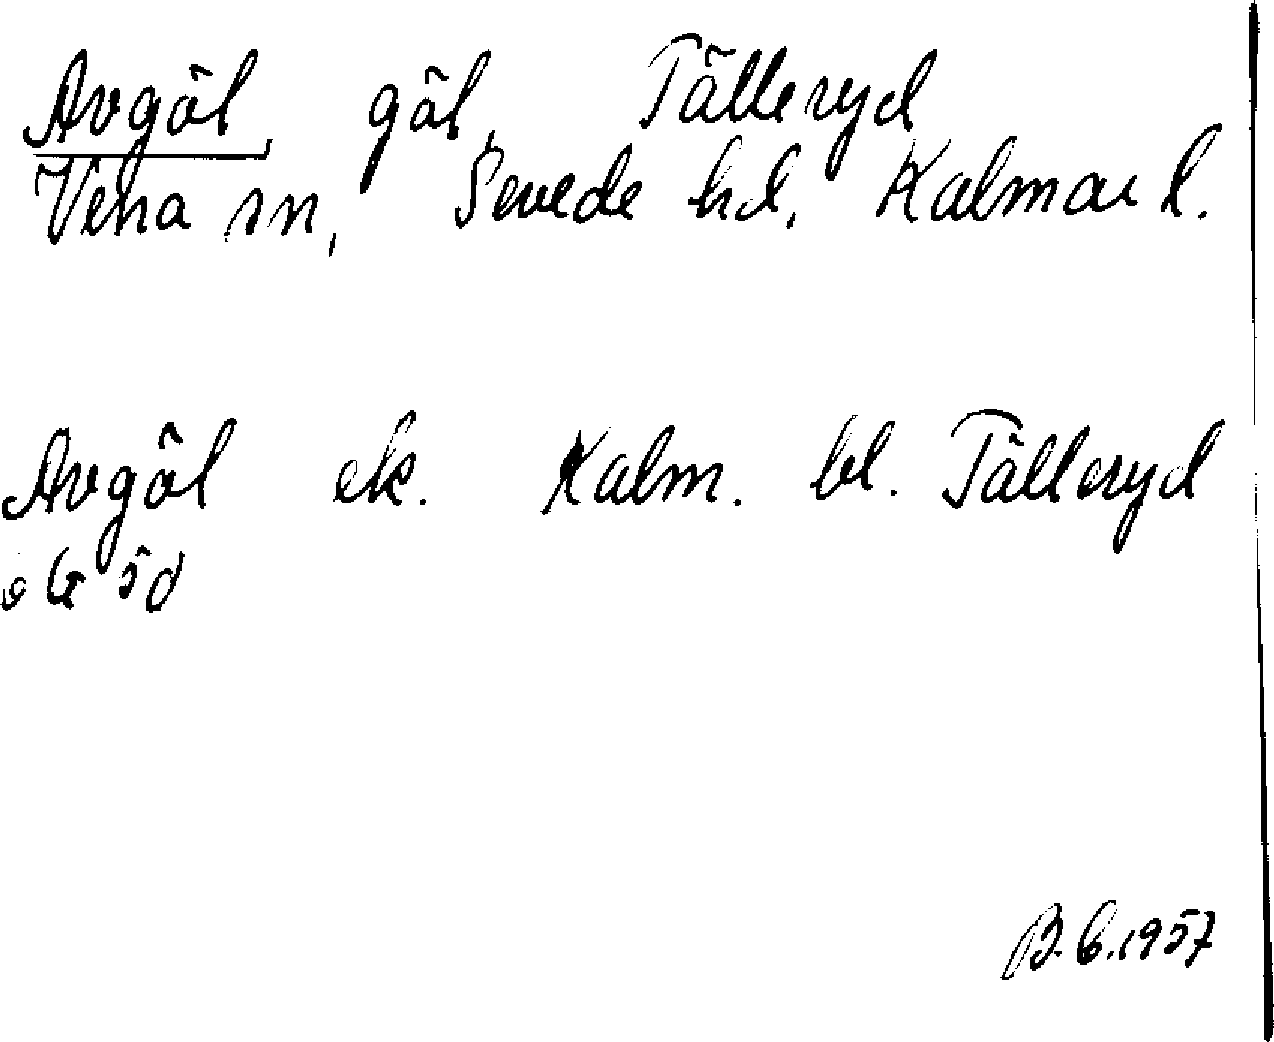 Avgöl, göl, Tälleryd
Vena sn, Sevede hd, Kalmar l.
Avgöl ek. Kalm. bl. Tälleryd
5d
B. C. 1957